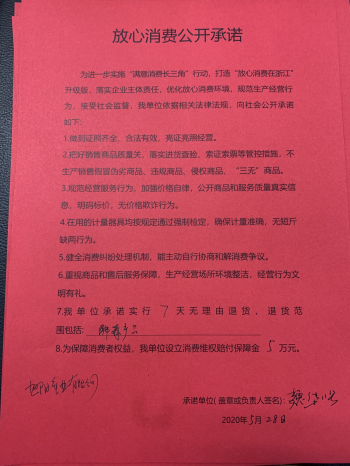 放心消费公开承诺
为进一步实施“满意消费长三角”行动，打造“放心消费在浙江”
升级版，落实企业主体责任，优化放心消费环境，规范生产经营行
为，接受社会监督，我单位依据相关法律法规，向社会公开承诺
如下：
1.做到证照齐全、合法有效，亮证亮照经营。
2.把好销售商品质量关，落实进货查验、索证索票等管控措施，不
生产销售假冒伪劣商品、违规商品、侵权商品、“三无”商品。
3.规范经营服务行为，加强价格自律，公开商品和服务质量真实信
息、明码标价，无价格欺诈行为。
4.在用的计量器具均按规定通过强制检定，确保计量准确，无短斤
缺两行为。
5.健全消费纠纷处理机制，能主动自行协商和解消费争议。
6.重视商品和售后服务保障，生产经营场所环境整洁，经营行为文
明有礼。
7.我单位承诺实行 7 天无理由退货，退货范
围包括：
8.为保障消费者权益，我单位设立消费维权赔付保障金 5 万元。
承诺单位(盖章或负责人签名)：
2020年5月28日